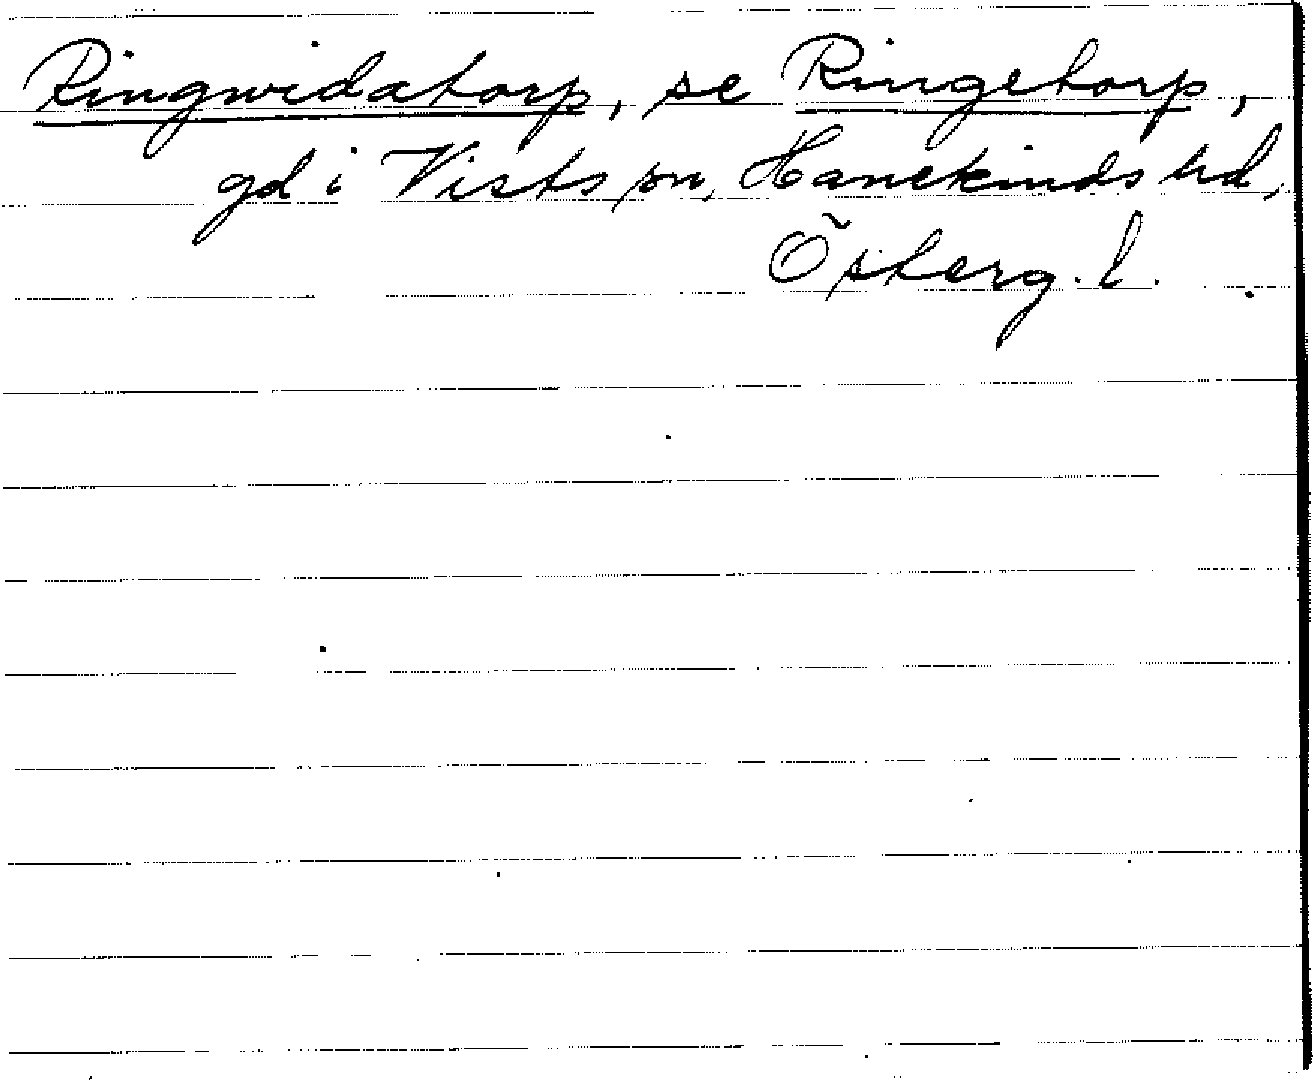 Ringwidatorp, se Ringetorp,
gd i Vists sn, Hanekinds hd,
Österg. l.